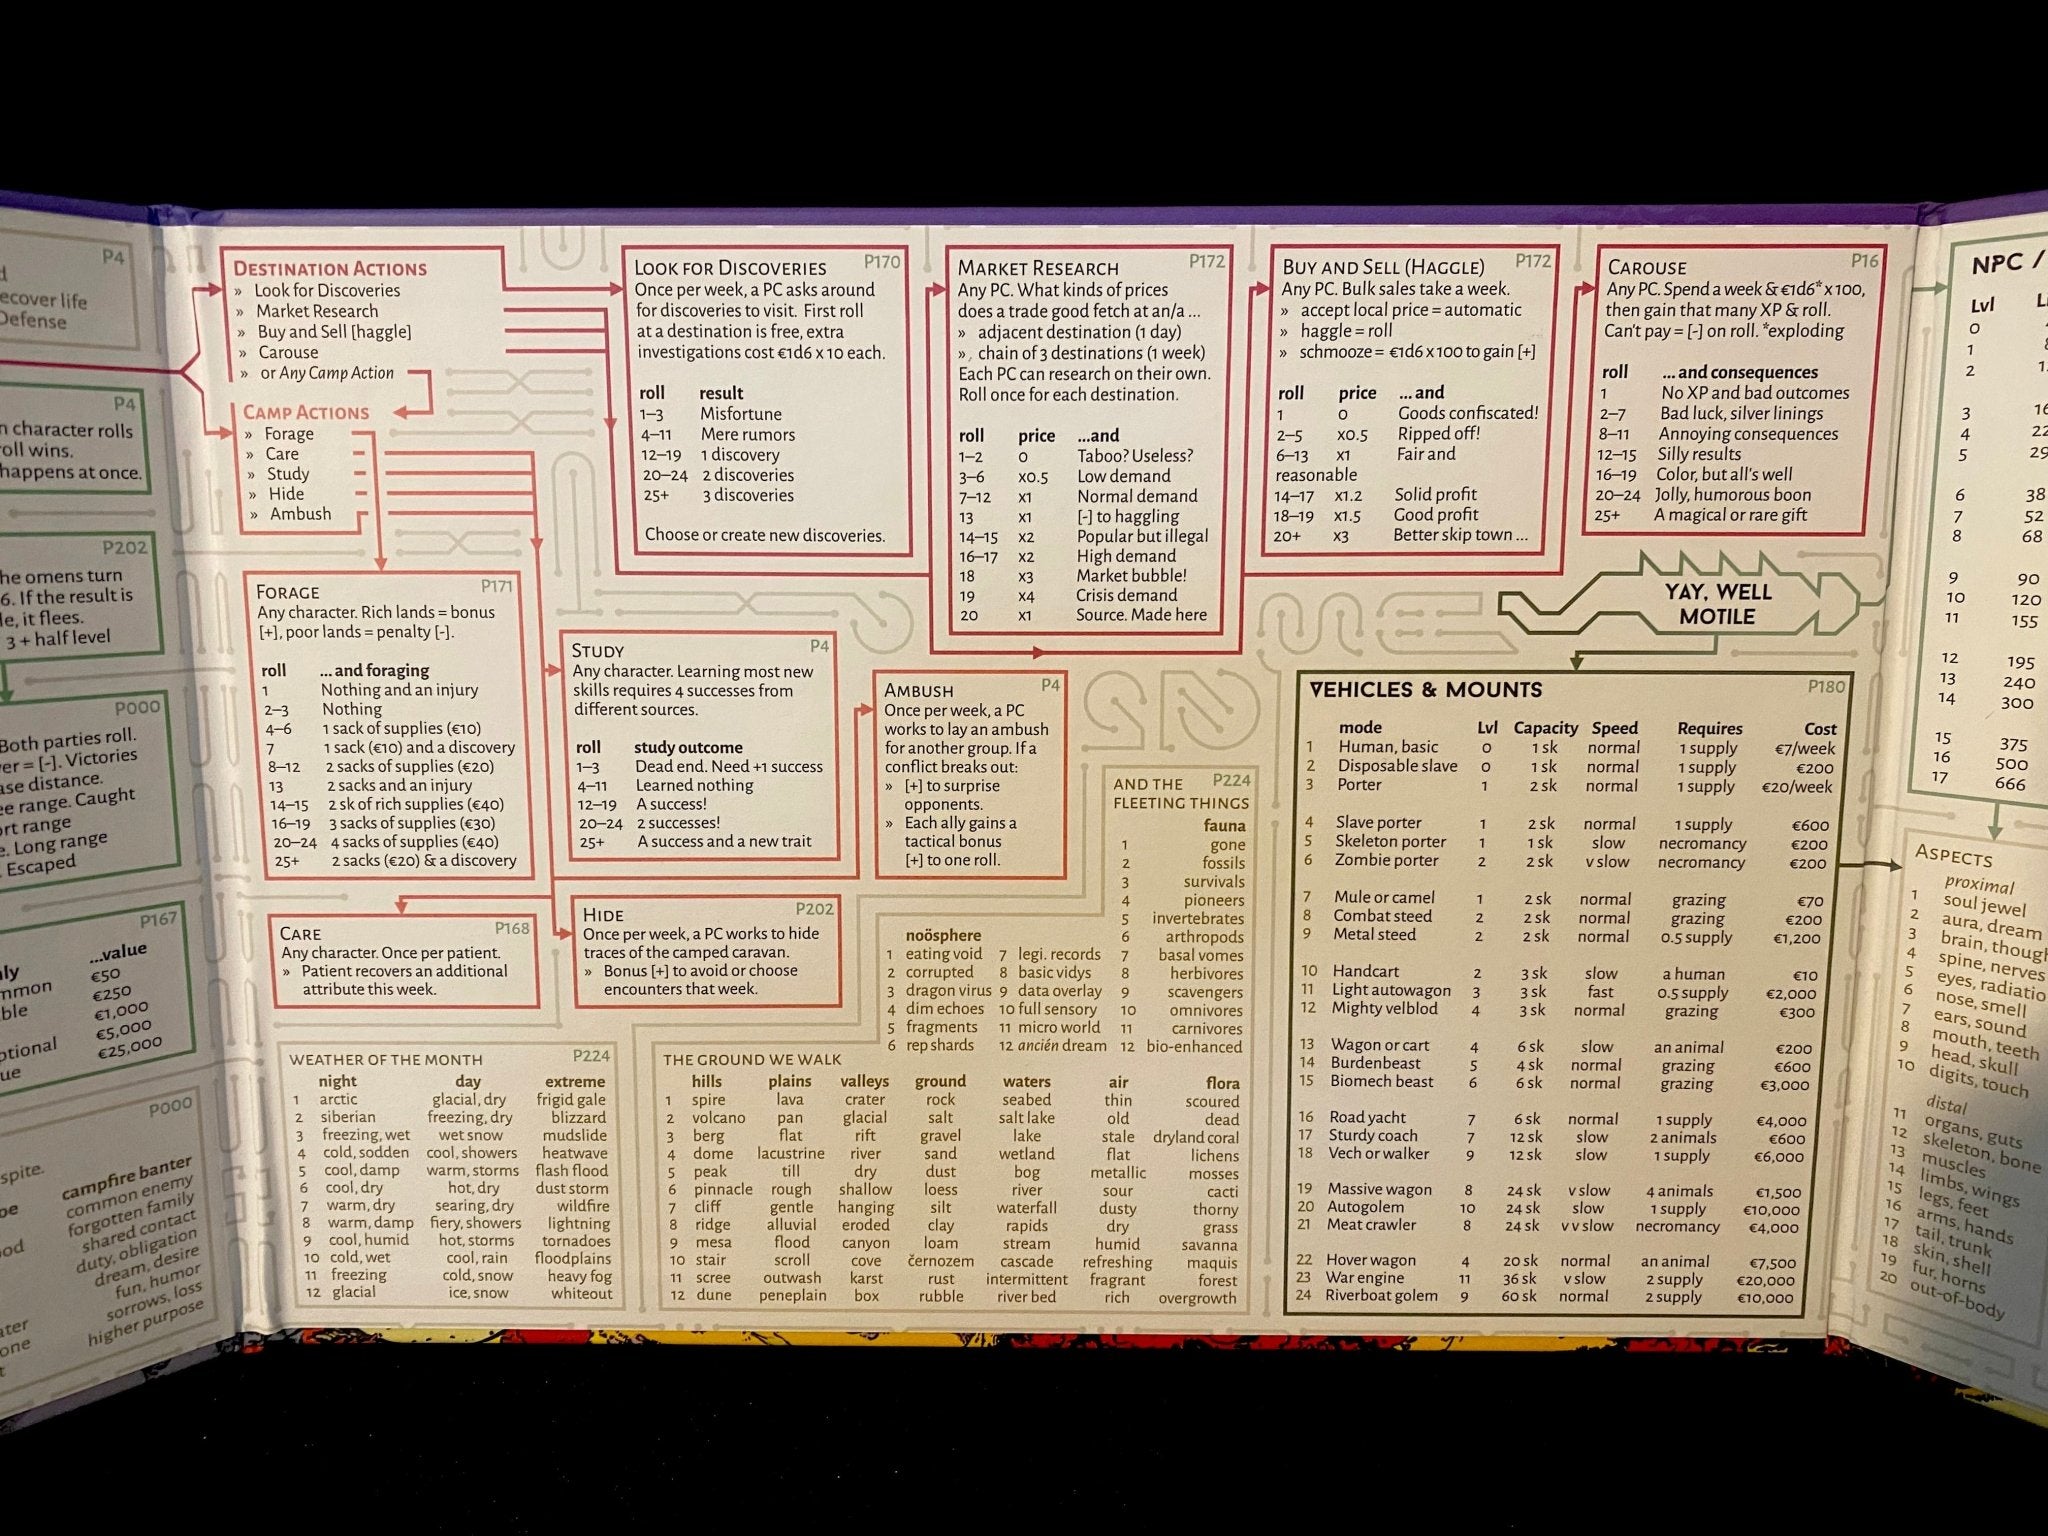 P4
ecover life
Defense
P4
n character rolls
roll wins.
happens at once.
P202
he omens turn
6. If the result is
le, it flees.
3 + half level
P000
Both parties roll.
er = [-]. Victories
ase distance.
ee range. Caught
ort range
e. Long range
Escaped
P167
...value
€50
€250
€1,000
€5,000
€25,000
P000
spite.
campfire banter
common enemy
forgotten family
shared contact
duty, obligation
dream, desire
fun, humor
sorrows, loss
higher purpose
DESTINATION ACTIONS
» Look for Discoveries
» Market Research
» Buy and Sell [haggle]
» Carouse
» or Any Camp Action
CAMP ACTIONS
» Forage
» Care
» Study
» Hide
» Ambush
LOOK FOR DISCOVERIES P170
Once per week, a PC asks around
for discoveries to visit. First roll
at a destination is free, extra
investigations cost €1d6 x 10 each.
roll result
1–3 Misfortune
4–11 Mere rumors
12–19 1 discovery
20–24 2 discoveries
25+ 3 discoveries
Choose or create new discoveries.
MARKET RESEARCH P172
Any PC. What kinds of prices
does a trade good fetch at an/a ...
» adjacent destination (1 day)
» chain of 3 destinations (1 week)
Each PC can research on their own.
Roll once for each destination.
roll price ...and
1–2 0 Taboo? Useless?
3–6 x0.5 Low demand
7–12 x1 Normal demand
13 x1 [-] to haggling
14–15 x2 Popular but illegal
16–17 x2 High demand
18 x3 Market bubble!
19 x4 Crisis demand
20 x1 Source. Made here
BUY AND SELL (HAGGLE) P172
Any PC. Bulk sales take a week.
» accept local price = automatic
» haggle = roll
» schmooze = €1d6 x 100 to gain [+]
roll price ...and
1 0 Goods confiscated!
2–5 x0.5 Ripped off!
6–13 x1 Fair and
reasonable
14–17 x1.2 Solid profit
18–19 x1.5 Good profit
20+ x3 Better skip town ...
CAROUSE P16
Any PC. Spend a week & €1d6* x 100,
then gain that many XP & roll.
Can't pay = [-] on roll. *exploding
roll ...and consequences
1 No XP and bad outcomes
2–7 Bad luck, silver linings
8–11 Annoying consequences
12–15 Silly results
16–19 Color, but all's well
20–24 Jolly, humorous boon
25+ A magical or rare gift
FORAGE P171
Any character. Rich lands = bonus
[+], poor lands = penalty [-].
roll ...and foraging
1 Nothing and an injury
2–3 Nothing
4–6 1 sack of supplies (€10)
7 1 sack (€10) and a discovery
8–12 2 sacks of supplies (€20)
13 2 sacks and an injury
14–15 2 sk of rich supplies (€40)
16–19 3 sacks of supplies (€30)
20–24 4 sacks of supplies (€40)
25+ 2 sacks (€20) & a discovery
STUDY P4
Any character. Learning most new
skills requires 4 successes from
different sources.
roll study outcome
1–3 Dead end. Need +1 success
4–11 Learned nothing
12–19 A success!
20–24 2 successes!
25+ A success and a new trait
AMBUSH P4
Once per week, a PC
works to lay an ambush
for another group. If a
conflict breaks out:
» [+] to surprise
opponents.
» Each ally gains a
tactical bonus
[+] to one roll.
CARE P168
Any character. Once per patient.
» Patient recovers an additional
attribute this week.
HIDE P202
Once per week, a PC works to hide
traces of the camped caravan.
» Bonus [+] to avoid or choose
encounters that week.
AND THE P224
FLEETING THINGS
fauna
1 gone
2 fossils
3 survivals
4 pioneers
5 invertebrates
6 arthropods
7 basal vomes
8 herbivores
9 scavengers
10 omnivores
11 carnivores
12 bio-enhanced
noösphere
1 eating void 7 legi. records
2 corrupted 8 basic vidys
3 dragon virus 9 data overlay
4 dim echoes 10 full sensory
5 fragments 11 micro world
6 rep shards 12 ancién dream
WEATHER OF THE MONTH P224
night day extreme
1 arctic glacial, dry frigid gale
2 siberian freezing, dry blizzard
3 freezing, wet wet snow mudslide
4 cold, sodden cool, showers heatwave
5 cool, damp warm, storms flash flood
6 cool, dry hot, dry dust storm
7 warm, dry searing, dry wildfire
8 warm, damp fiery, showers lightning
9 cool, humid hot, storms tornadoes
10 cold, wet cool, rain floodplains
11 freezing cold, snow heavy fog
12 glacial ice, snow whiteout
THE GROUND WE WALK
hills plains valleys ground waters air flora
1 spire lava crater rock seabed thin scoured
2 volcano pan glacial salt salt lake old dead
3 berg flat rift gravel lake stale dryland coral
4 dome lacustrine river sand wetland flat lichens
5 peak till dry dust bog metallic mosses
6 pinnacle rough shallow loess river sour cacti
7 cliff gentle hanging silt waterfall dusty thorny
8 ridge alluvial eroded clay rapids dry grass
9 mesa flood canyon loam stream humid savanna
10 stair scroll cove černozem cascade refreshing maquis
11 scree outwash karst rust intermittent fragrant forest
12 dune peneplain box rubble river bed rich overgrowth
YAY, WELL
MOTILE
VEHICLES & MOUNTS P180
mode Lvl Capacity Speed Requires Cost
1 Human, basic 0 1 sk normal 1 supply €7/week
2 Disposable slave 0 1 sk normal 1 supply €200
3 Porter 1 2 sk normal 1 supply €20/week
4 Slave porter 1 2 sk normal 1 supply €600
5 Skeleton porter 1 1 sk slow necromancy €200
6 Zombie porter 2 2 sk v slow necromancy €200
7 Mule or camel 1 2 sk normal grazing €70
8 Combat steed 2 2 sk normal grazing €200
9 Metal steed 2 2 sk normal 0.5 supply €1,200
10 Handcart 2 3 sk slow a human €10
11 Light autowagon 3 3 sk fast 0.5 supply €2,000
12 Mighty velblod 4 3 sk normal grazing €300
13 Wagon or cart 4 6 sk slow an animal €200
14 Burdenbeast 5 4 sk normal grazing €600
15 Biomech beast 6 6 sk normal grazing €3,000
16 Road yacht 7 6 sk normal 1 supply €4,000
17 Sturdy coach 7 12 sk slow 2 animals €600
18 Vech or walker 9 12 sk slow 1 supply €6,000
19 Massive wagon 8 24 sk v slow 4 animals €1,500
20 Autogolem 10 24 sk slow 1 supply €10,000
21 Meat crawler 8 24 sk v v slow necromancy €4,000
22 Hover wagon 4 20 sk normal an animal €7,500
23 War engine 11 36 sk v slow 2 supply €20,000
24 Riverboat golem 9 60 sk normal 2 supply €10,000
NPC /
Lvl
0
1
2
3 16
4 22
5 29
6 38
7 52
8 68
9 90
10 120
11 155
12 195
13 240
14 300
15 375
16 500
17 666
ASPECTS
proximal
1 soul jewel
2 aura, dream
3 brain, though
4 spine, nerves
5 eyes, radiatio
6 nose, smell
7 ears, sound
8 mouth, teeth
9 head, skull
10 digits, touch
distal
11 organs, guts
12 skeleton, bone
13 muscles
14 limbs, wings
15 legs, feet
16 arms, hands
17 tail, trunk
18 skin, shell
19 fur, horns
20 out-of-body